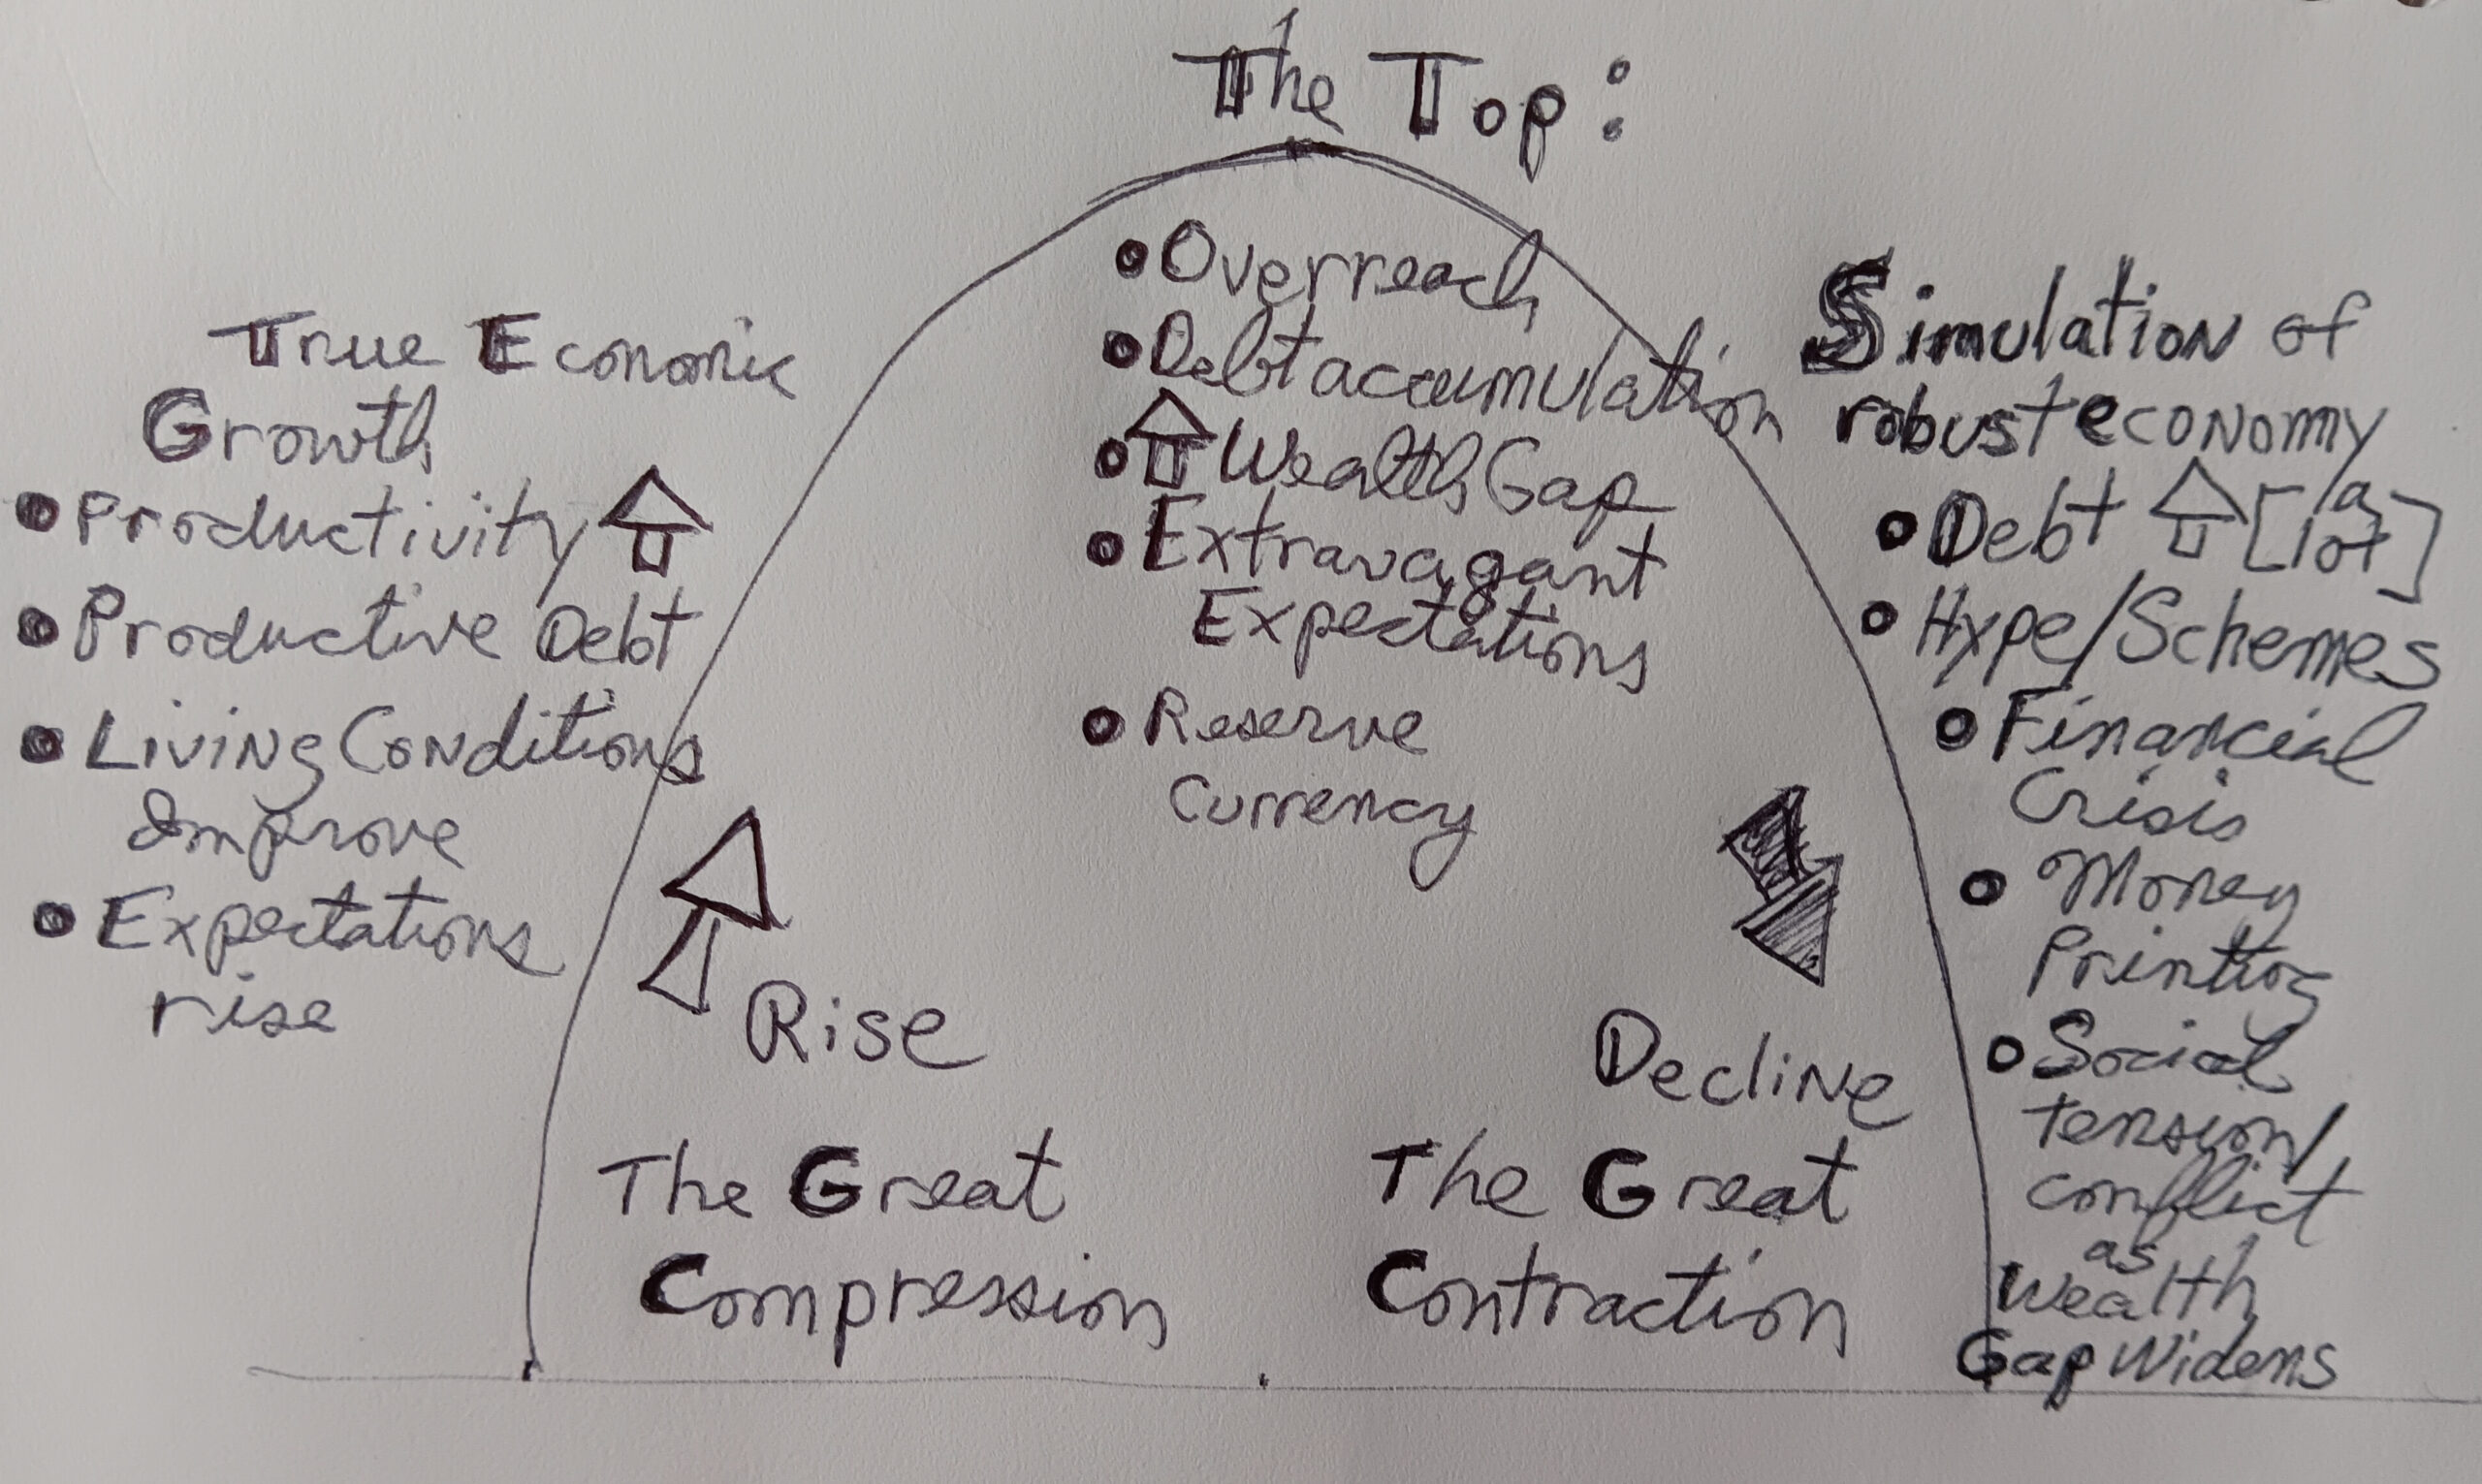 The Top:
True Economic
Growth
• Productivity ⇧
• Productive Debt
• Living Conditions
Improve
• Expectations
rise
• Overreach
• Debt accumulation
• ⇧ Wealth Gap
• Extravagant
Expectations
• Reserve
Currency
Simulation of
robust economy
• Debt ⇧ [a
lot]
• Hype/Schemes
• Financial
Crisis
• Money
Printing
• Social
tension/
conflict
as
Wealth
Gap Widens
Rise
The Great
Compression
Decline
The Great
Contraction